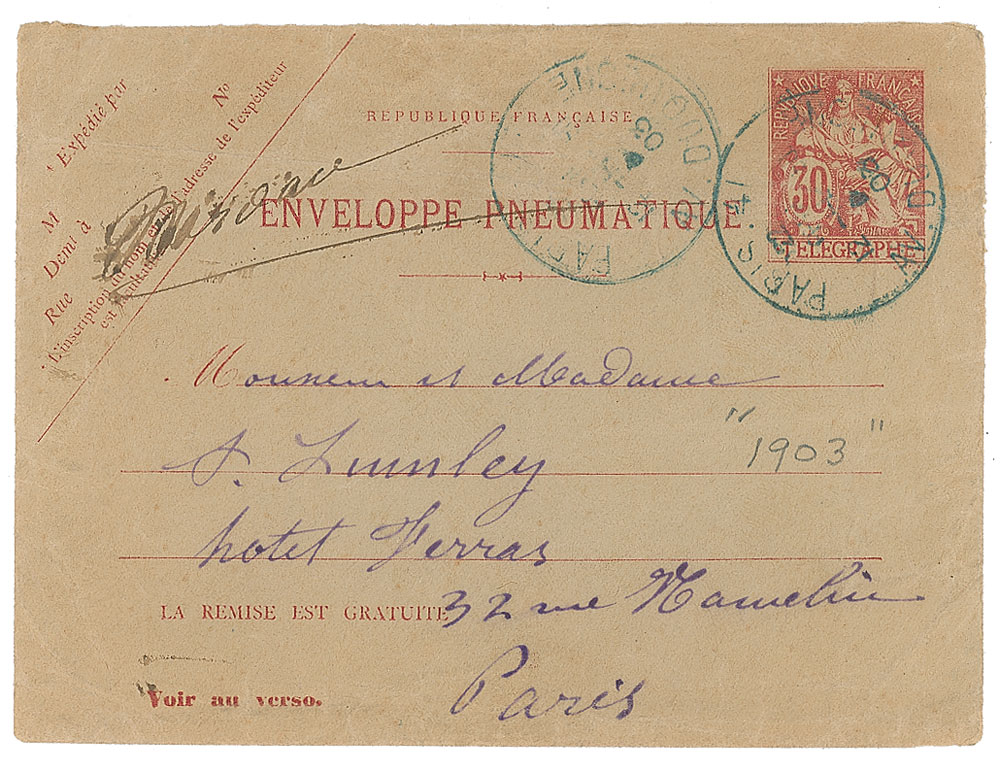 Expédié par
M
Nº
Demt à
Rue
L'inscription du nom et de l'adresse de l'expéditeur
est facultative
REPUBLIQUE FRANÇAISE
ENVELOPPE PNEUMATIQUE
REPUBLIQUE FRANÇAISE
30
TELEGRAPHE
PARIS
03
PARIS
03
Monsieur et Madame
S. Lumley
"1903"
hotel Ferras
LA REMISE EST GRATUITE
32 rue Hamelin
Paris
Voir au verso.